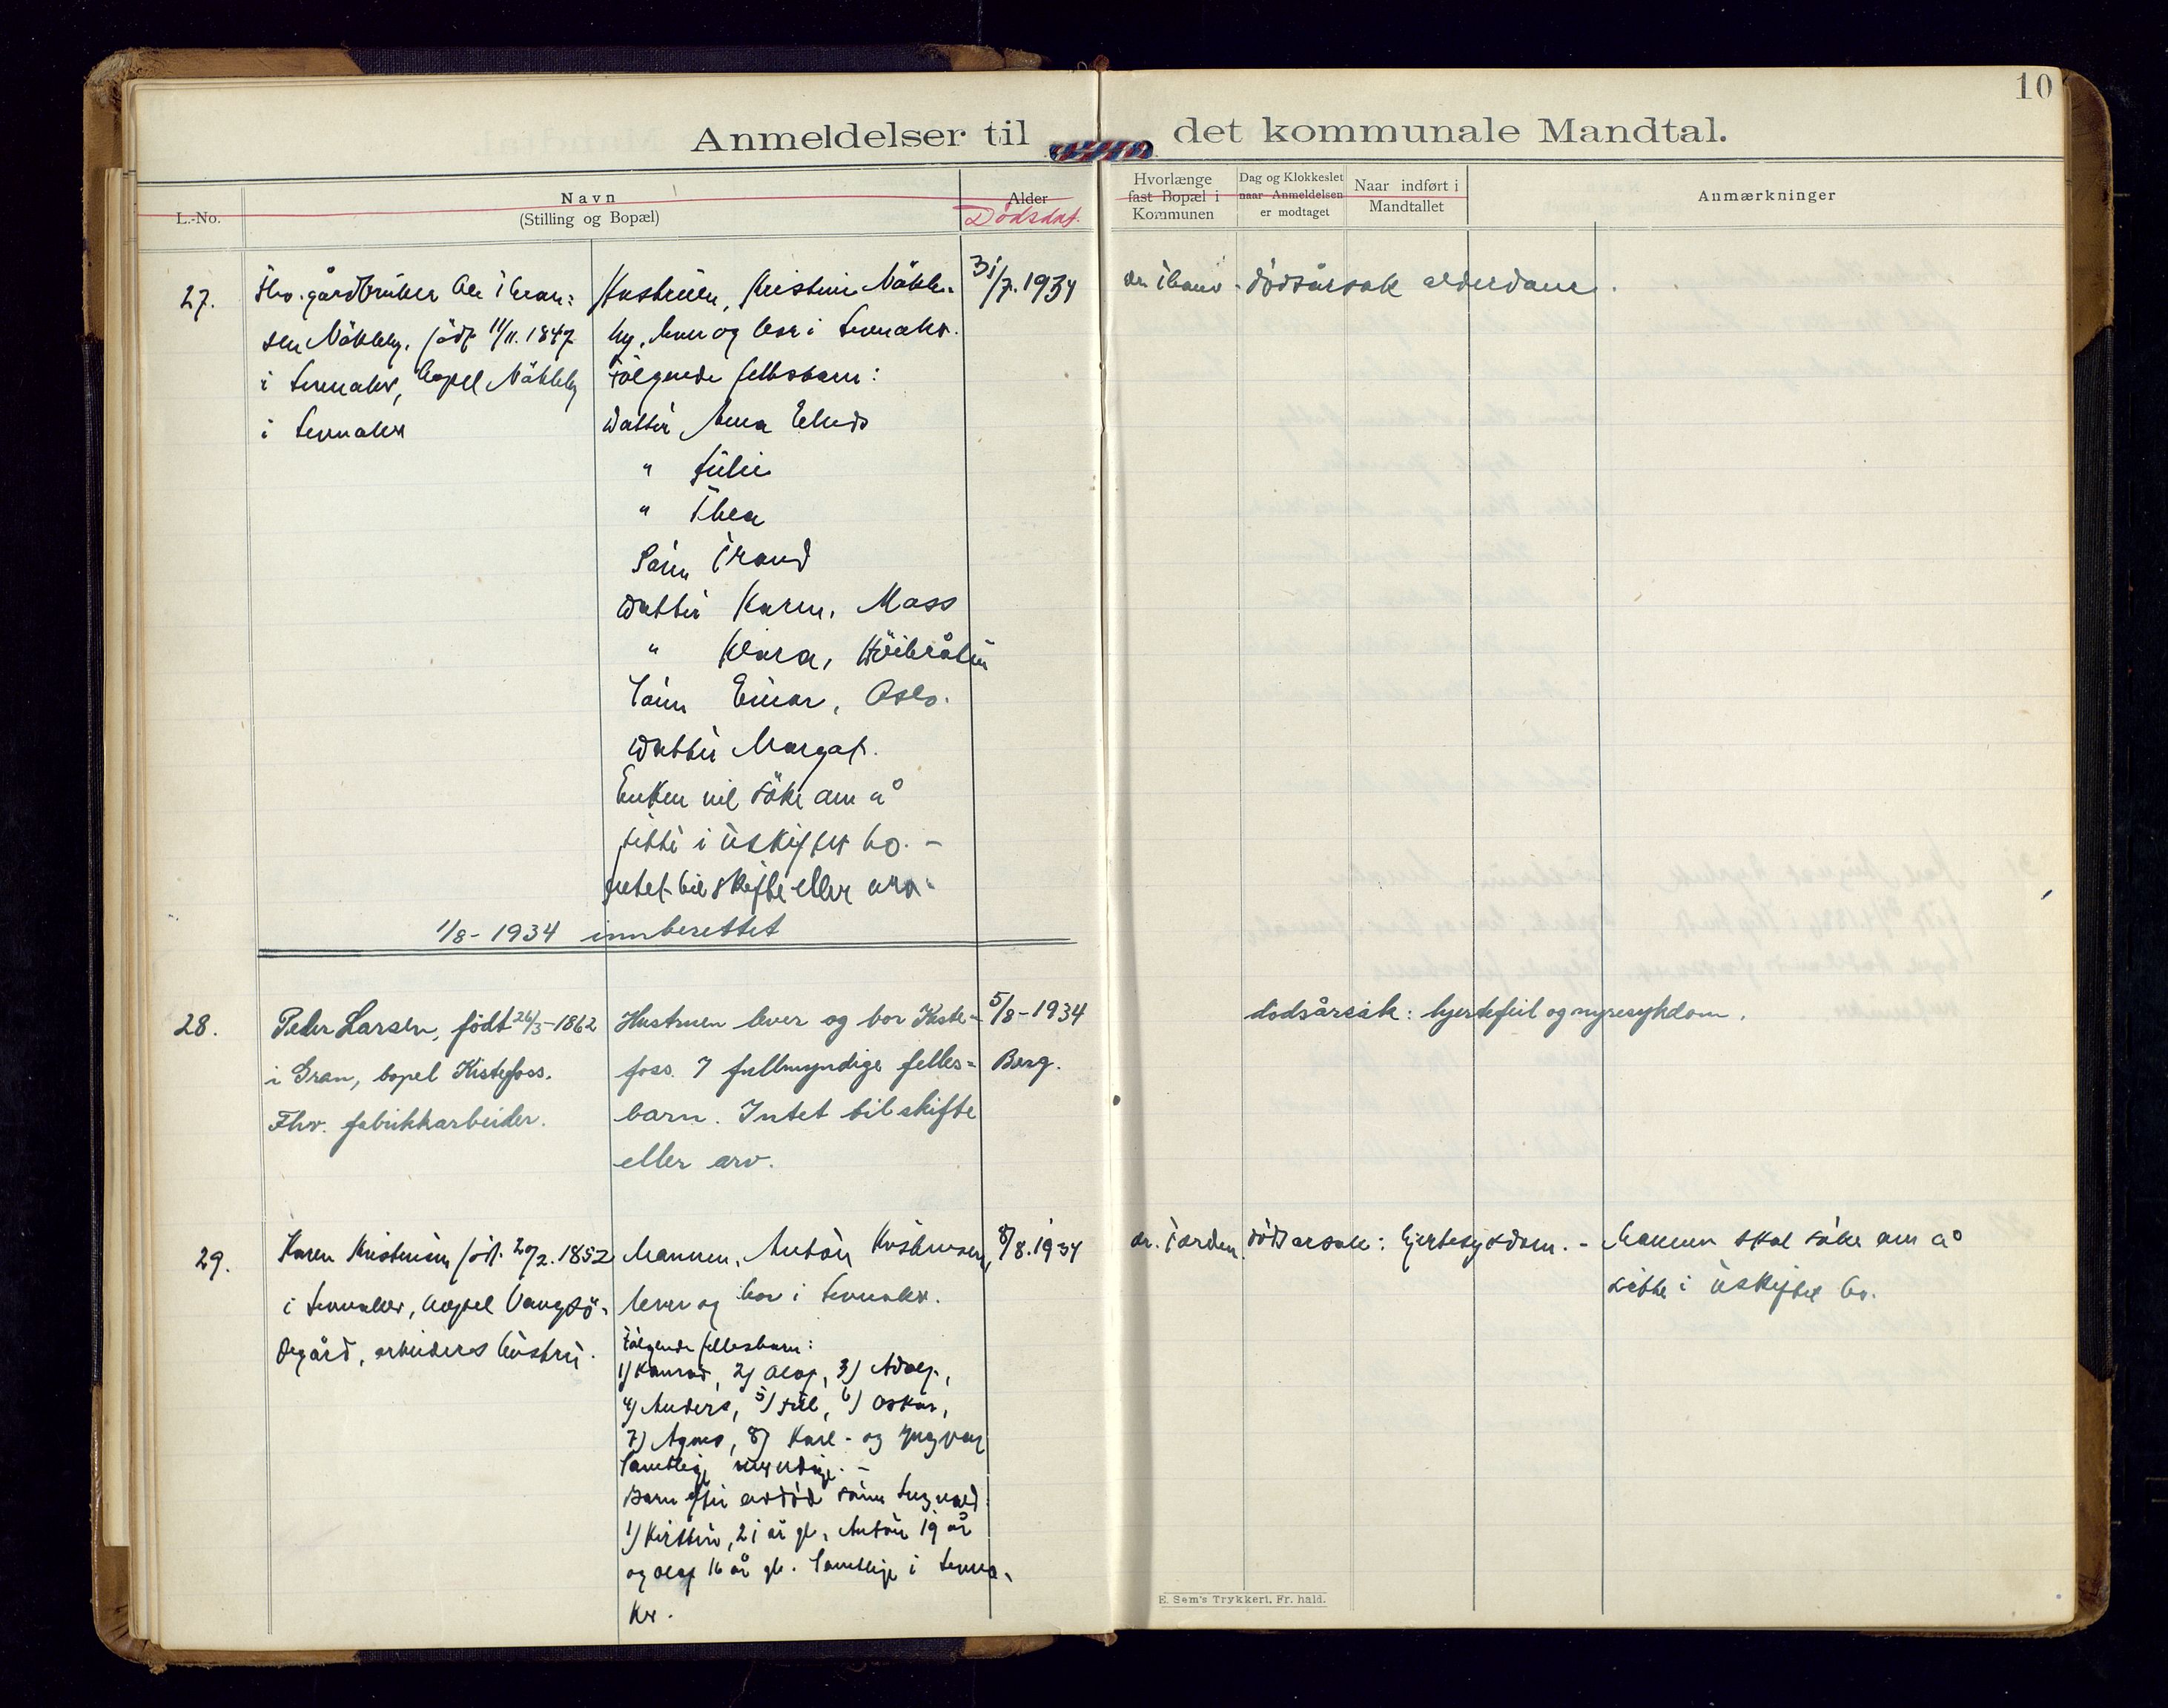 10
Anmeldelser til det kommunale Mandtal.
L.-No.
Navn
(Stilling og Bopæl)
Alder
Dødsdat.
Hvorlænge fast Bopæl i Kommunen
Dag og Klokkeslet naar Anmeldelsen er modtaget
Naar indført i Mandtallet
Anmærkninger
27.
Fhv. gårdbruker Ole
sen Nökleby, född 11/11. 1847
i Jevnaker, bopel Nökleby
i Jevnaker
Hustruen, Kristine Nökle-
by, lever og bor i Jevnaker.
Følgende fellesbarn:
Datter Anna
" Julie
" Thea
Sönn Trand
Datter Karen, Moss
" Klara,
Sönn Einar, Oslo.
Datter Margat.
Enken vil söke om å
sitte i uskiftet bo. -
Intet til skifte eller arv.
1/8 - 1934 innberettet
31/7. 1934
dödsårsak alderdom.
28.
Peder Larsen, født 26/5-1862
i Gran, bopel Kistefoss.
Fhv. fabrikkarbeider.
Hustruen lever og bor Kiste-
foss. 7 fullmyndige felles-
barn. Intet til skifte
eller arv.
5/8-1934
Berg.
dødsårsak: hjertefeil og nyresykdom.
29.
Karen Kristensen föd. 20/2. 1852
i Jevnaker, bopel
ård, arbeiders hustru.
Mannen, Anton Kristensen,
lever og bor i Jevnaker.
Følgende fellesbarn:
1) Konrad, 2) Olaf, 3) Adolf,
4) Anders, 5) Juel, 6) Oskar,
7) Agnes, 8) Karl - og Yngvar
Samtlige myndige. -
Barn efter avdöd sönn
1) Kirsten, 21 år gl., Anton 19 år
og Olaf 16 år gl. Samtlige i Jevna-
ker.
8/8. 1934
dr. Jorden
dödsårsak: hjertesykdom. -
Mannen skal söke om å
sitte i uskiftet bo.
E. Sem's Trykkeri, Fr. hald.